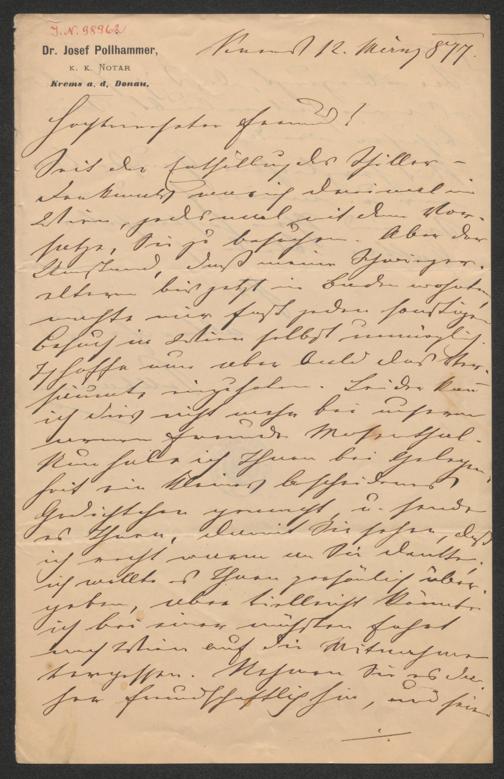 J. N. 98963
Dr. Josef Pollhammer,
K. K. NOTAR
Krems a. d. Donau.
12. März 877.
Hochverehrter Freund!
Seit der Enthüllung des Schiller-
denkmals war ich dreimal in
Wien, jedesmal mit dem Vor-
satze, Sie zu besuchen. Aber der
Umstand, daß meine Schwieger-
eltern bis jetzt in Baden wohnten,
machte mir fast jeden sonstigen
Besuch in Wien selbst unmöglich.
Ich hoffe nun aber bald das Ver-
säumte einzuholen. Leider kann
ich dies nicht mehr bei unserem
armen Freunde Mosenthal.
Nun habe ich Ihnen bei Gelegen-
heit ein kleines bescheidenes
Gedichtchen gemacht, u. sende
es Ihnen, damit Sie sehen, daß
ich recht warm an Sie denke,
ich wollte es Ihnen persönlich über-
geben, aber vielleicht könnte
ich bei einer nächsten Fahrt
nach Wien auf die Mitnahme
vergessen. Nehmen Sie es da-
her freundschaftlich hin, und seien
./.